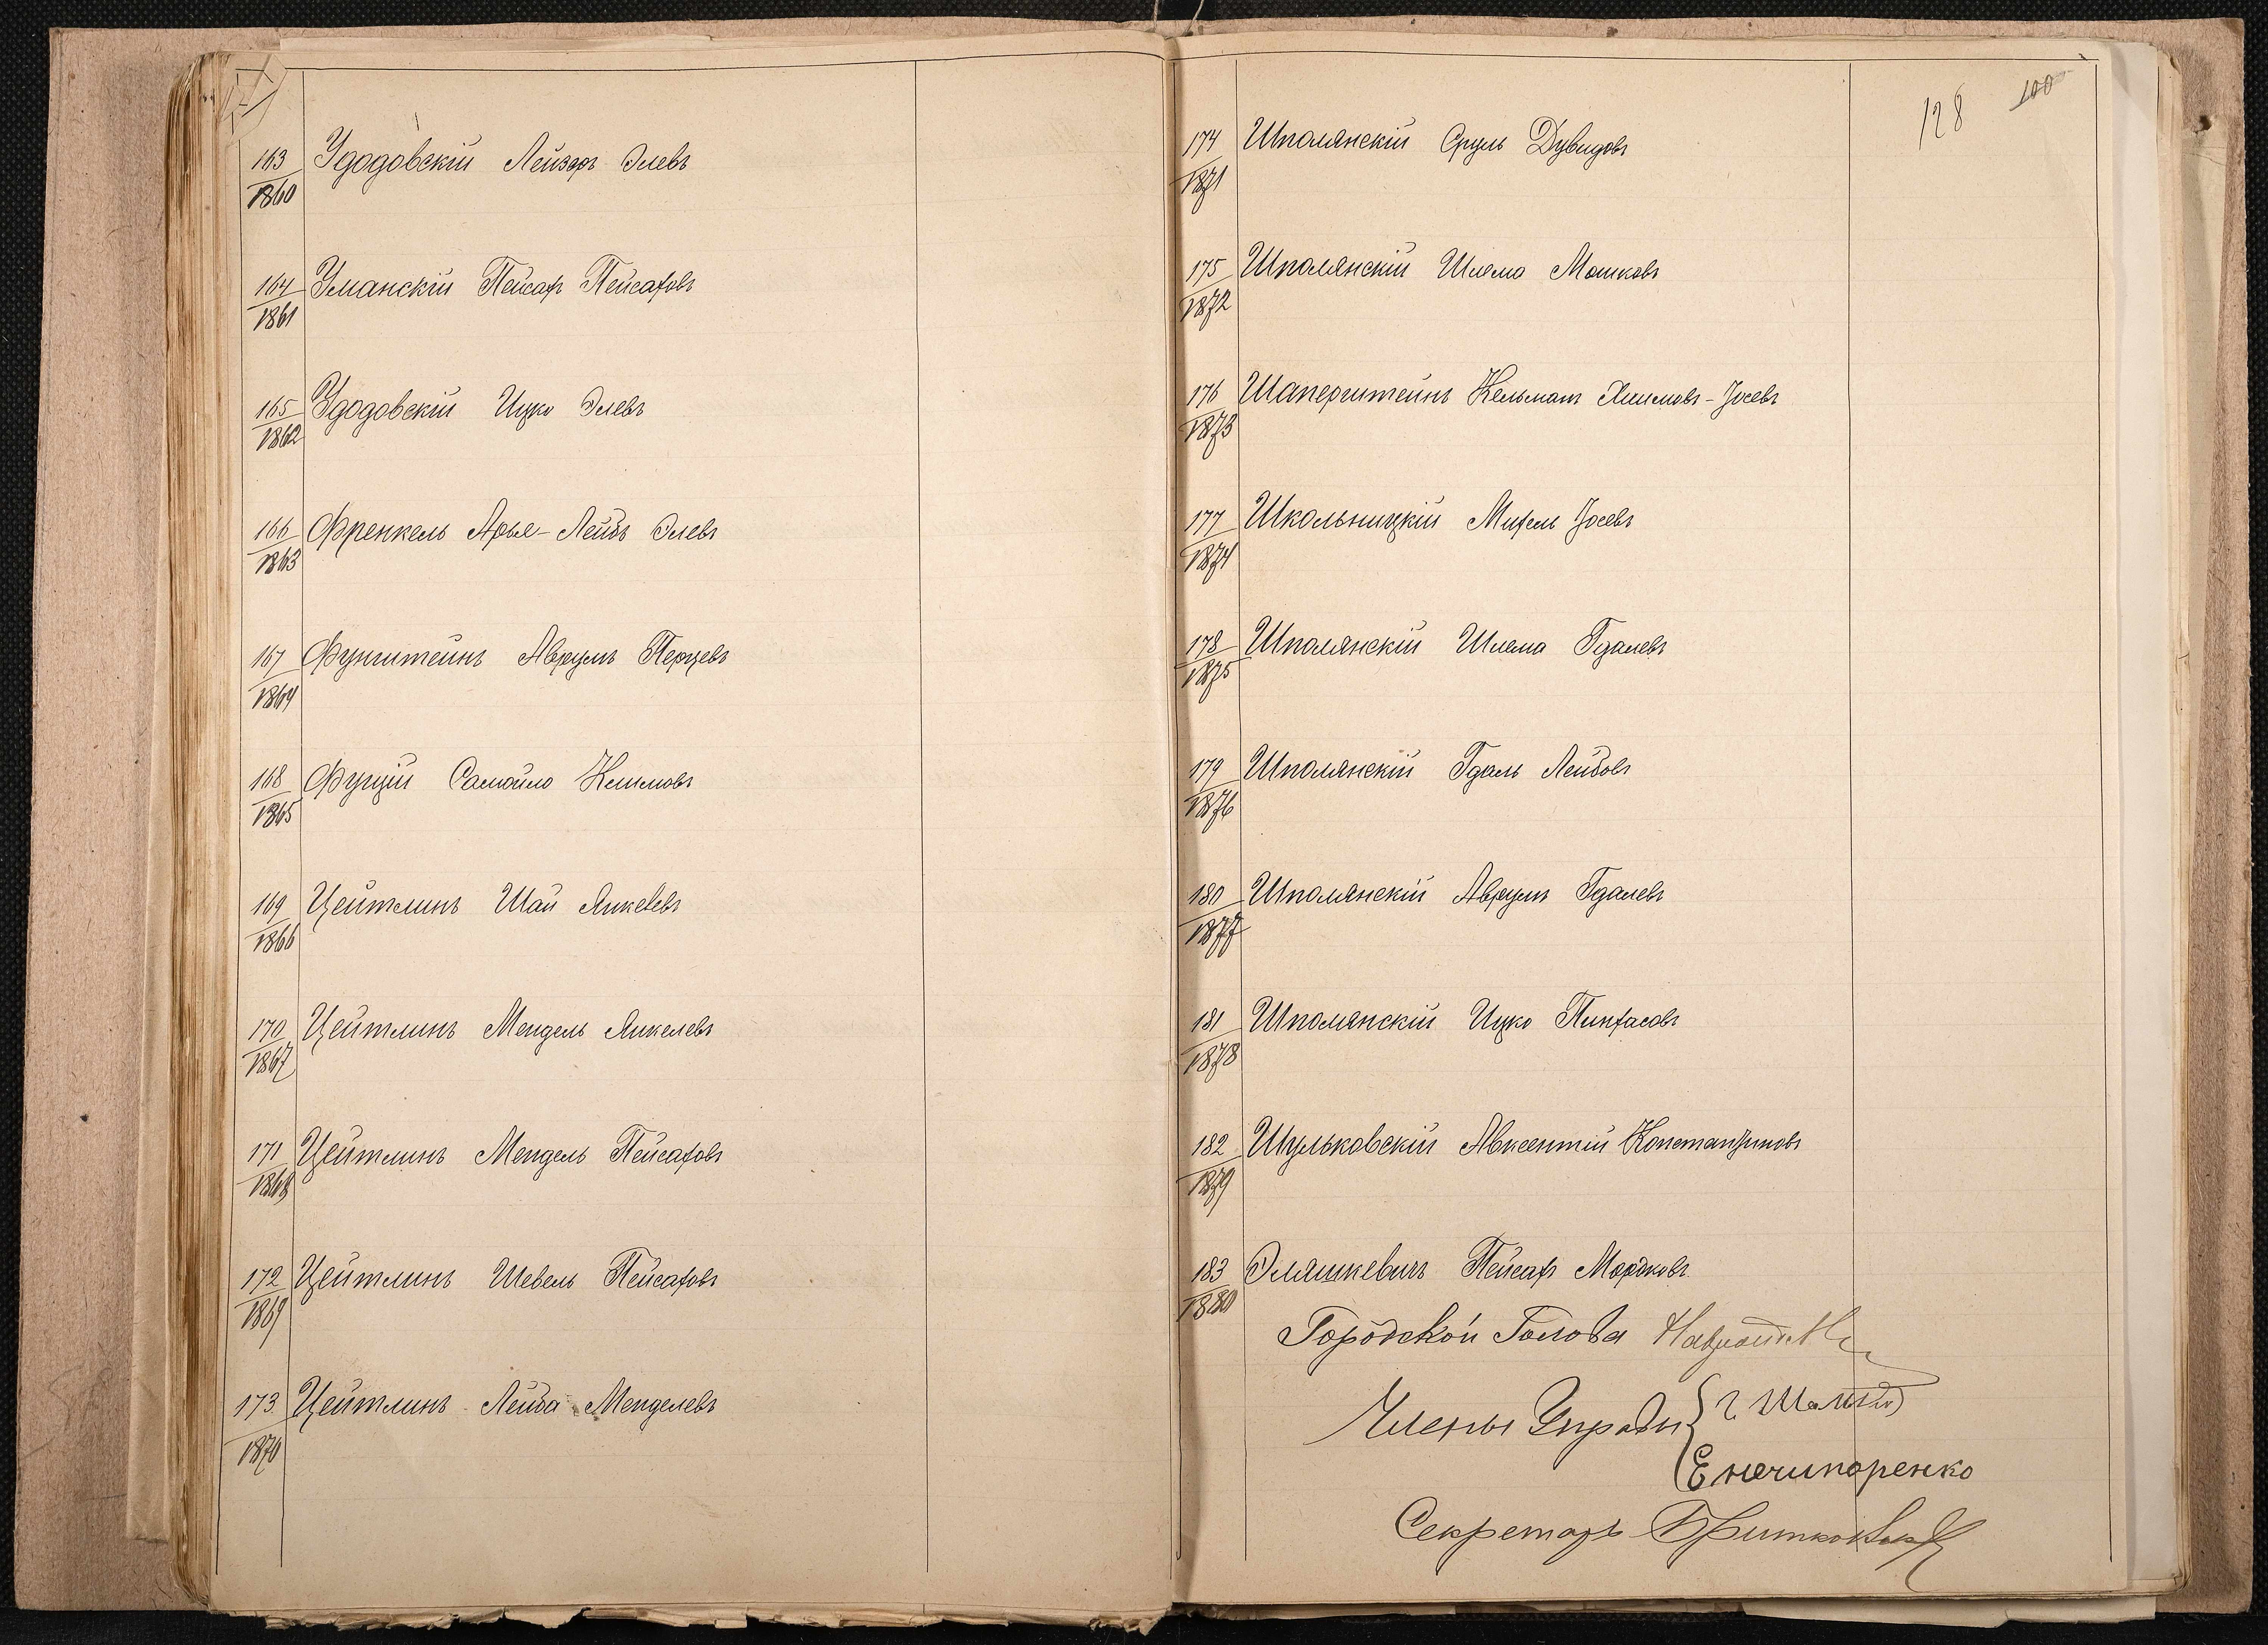 163/1860 Удодовскій Лейзоръ Элевъ
164/1861 Уманскій Пейсахъ Пейсаховъ
165/1862 Удодовскій Ицко Элевъ
166/1863 Френкель Арье-Лейбъ Элевъ
167/1864 Фунштейнъ Аврумъ Перцевъ
168/1865 Фуцій Самойло Климовъ
169/1866 Цейтлинъ Шай Янкелевъ
170/1867 Цейтлинъ Мендель Янкелевъ
171/1868 Цейтлинъ Мендель Пейсаховъ
172/1869 Цейтлинъ Шевель Пейсаховъ
173/1870 Цейтлинъ Лейба Менделевъ
128 100
174/1871 Шполянскій Сруль Дувидовъ
175/1872 Шполянскій Шлема Мошковъ
176/1873 Шаперштейнъ Кельманъ Хаимовъ-Іосевъ
177/1874 Школьницкій Михель Іосевъ
178/1875 Шполянскій Шлема Гдалевъ
179/1876 Шполянскій Гдаль Лейбовъ
180/1877 Шполянскій Аврумъ Гдалевъ
181/1878 Шполянскій Ицко Пинхасовъ
182/1879 Шульковскій Авксентій Константиновъ
183/1880 Эляшкевичъ Пейсахъ Мордковъ
Городской Голова
Члены Управы
Е Нечипоренко
Секретарь